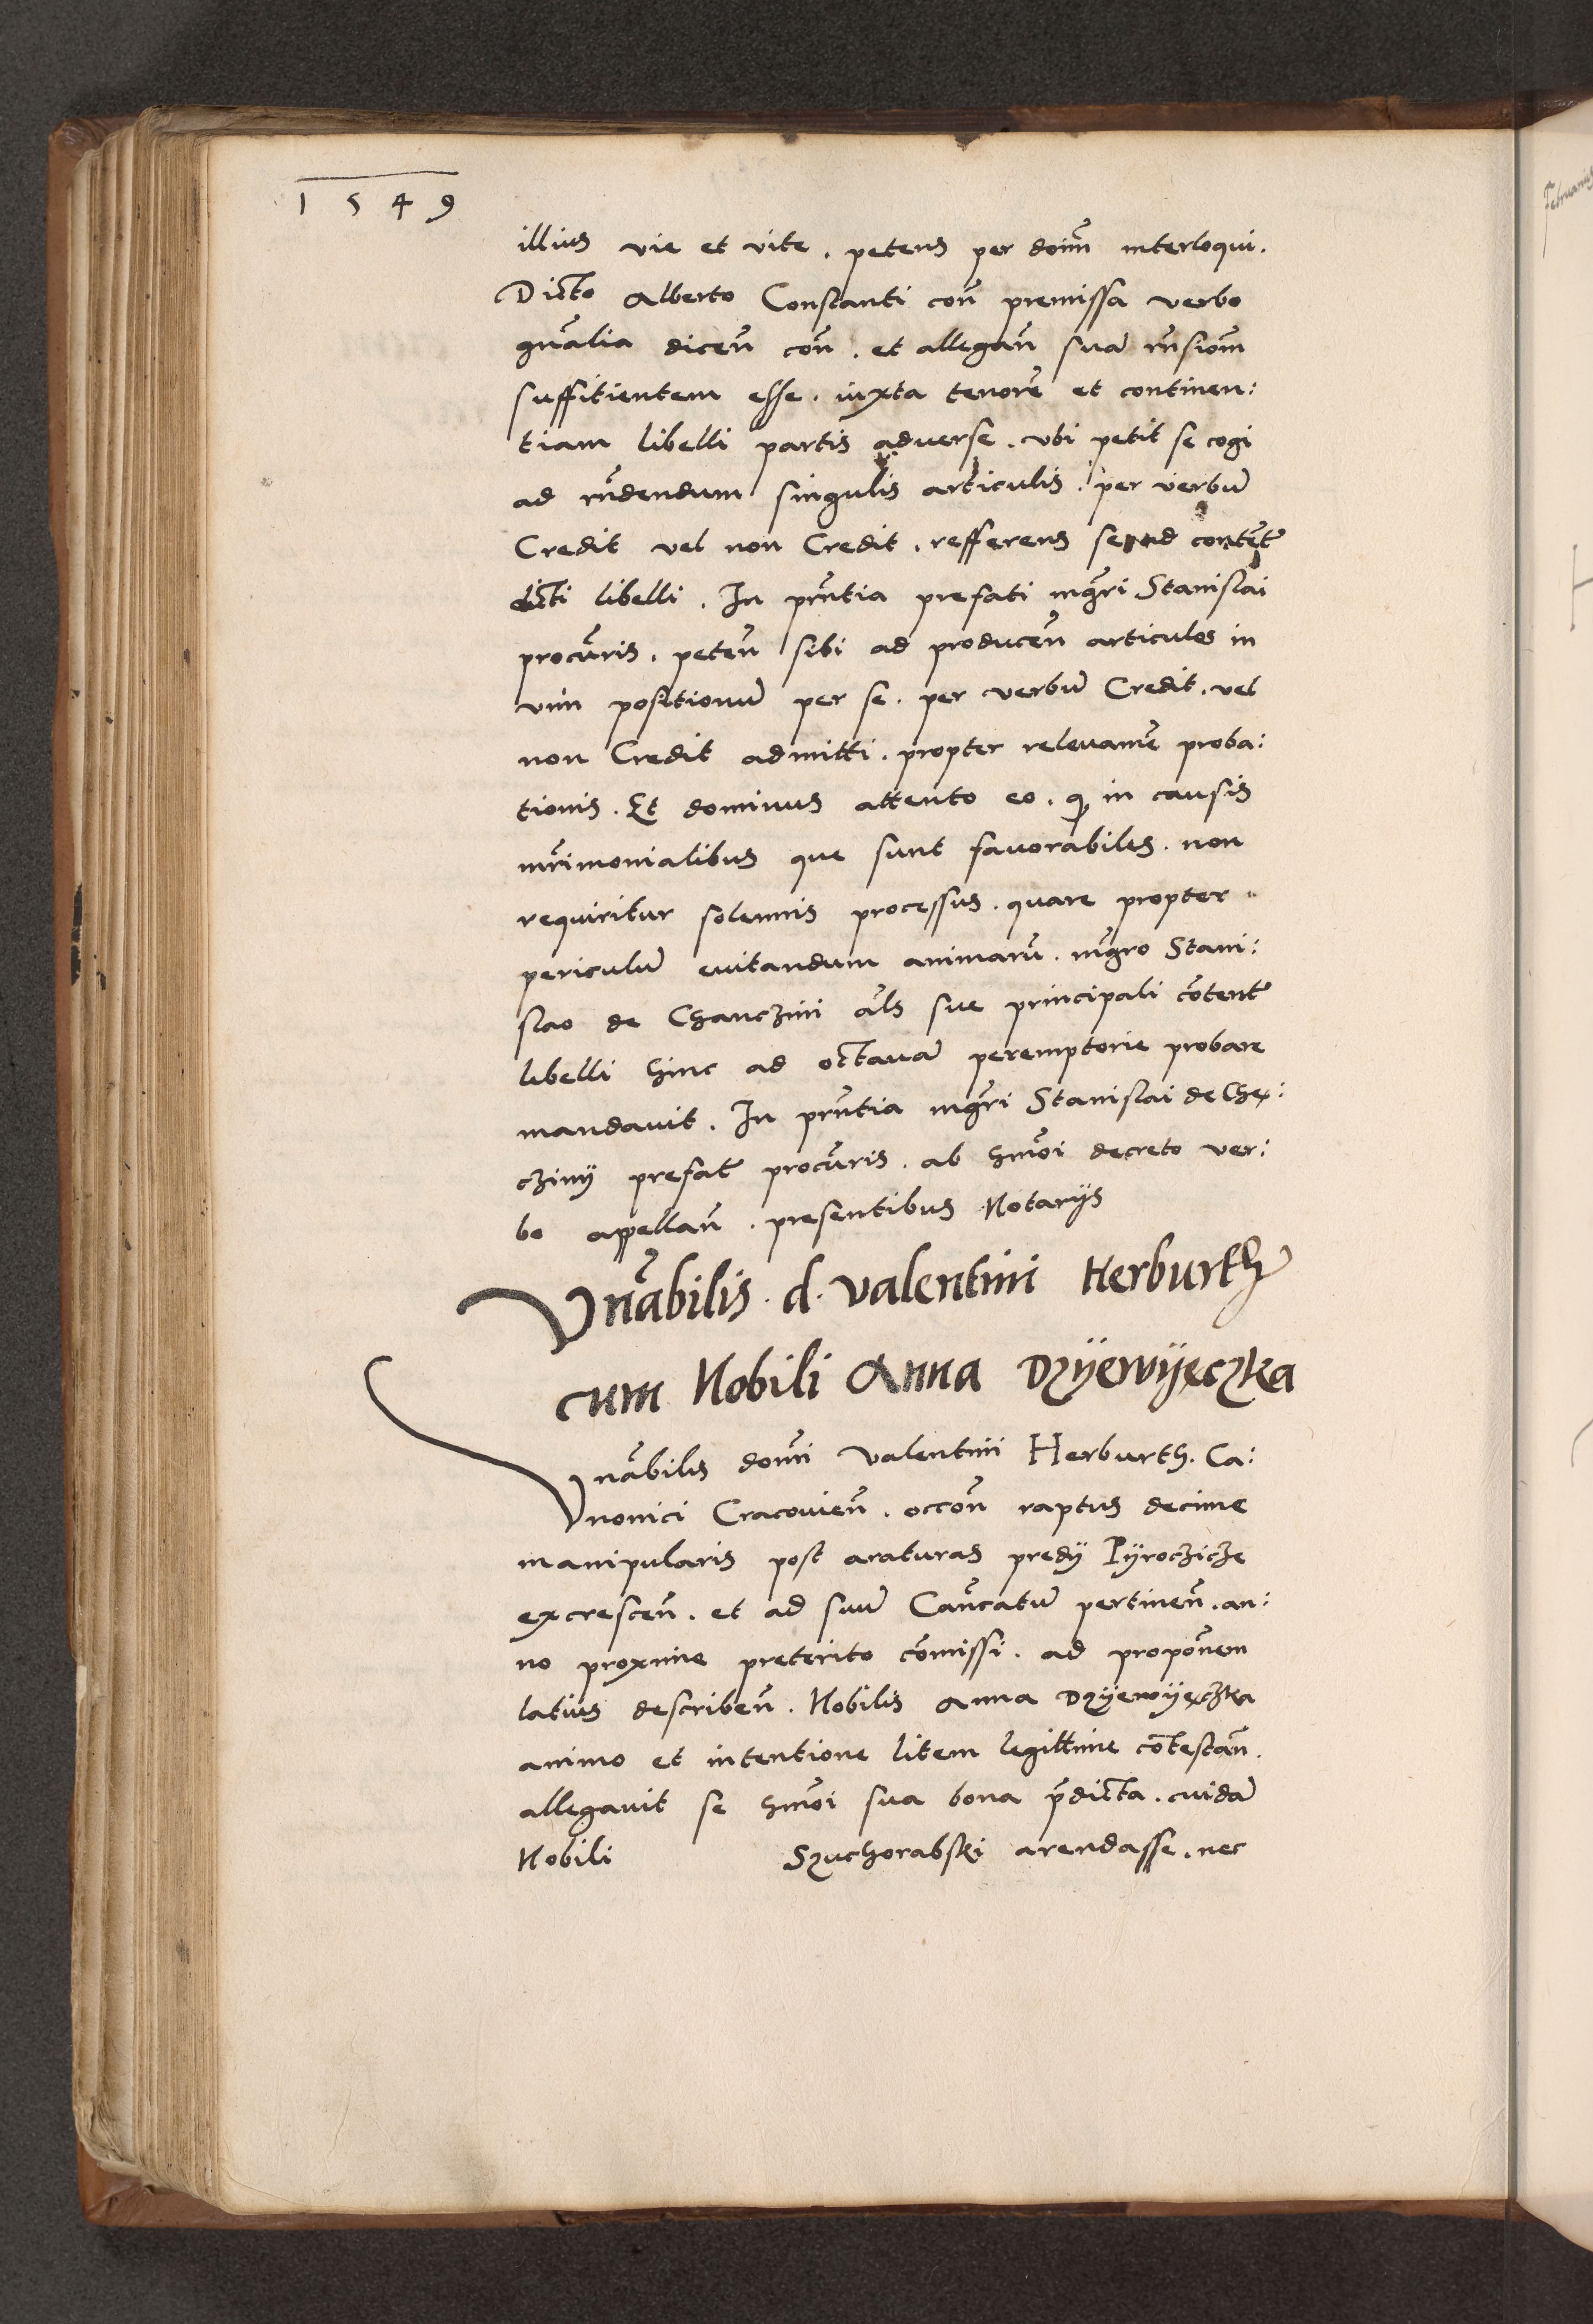 1549
illius vie et vite . petens per doim̄ interloqui.
Dicto Alberto Constanti con̄ premissa verbo
gn̄alia dicen̄ con̄ . et allegan̄ suā rn̄sionē
suffitientem esse . iuxta tenorē et continen:
tiam libelli partis aduerse . vbi petit se cogi
ad rn̄dendum singulis articulis . per verbū
Credit vel non Credit . refferens se ad contēt
dicti libelli . In prn̄tia prefati mgr̄i Stanislai
procūris . peten̄ sibi ad producen̄ articulos in
vim positionū per se . per verbū Credit . vel
non Credit admitti . propter releuamē proba:
tionis . Et dominus attento eo . q̄ in causis
mr̄imonialibus que sunt fauorabiles . non
requiritur solennis processus . quare propter
periculū euitandum animarū . mgr̄o Stani:
slao de Chanczini al̄s sue principali cōtent
libelli hinc ad octauā peremptorie probare
mandauit . In prn̄tia mgr̄i Stanislai de Chę:
cziny prefat̄ procūris . ab hmōi decreto ver:
bo appellan̄ . presentibus Notarijs
Vnābilis . d . Valentini Herburth
cum Nobili Anna Dzyewyęczka
Vnābilis domī Valentini Herburth . Ca:
nonici Cracouien̄ . occōn raptus decime
manipularis post araturas predij Pyroczicze
excrescen̄ . et ad suū Cān̄catū pertinen̄ . an:
no proxime preterito cōmissi . ad propōnem
latius describen̄ . Nobilis Anna Dzyewyęczka
animo et intentione litem legittime cōtestan̄ .
allegauit se hmōi sua bona p̄dicta . cuidā
Nobili Szuchorabski arendasse . nec